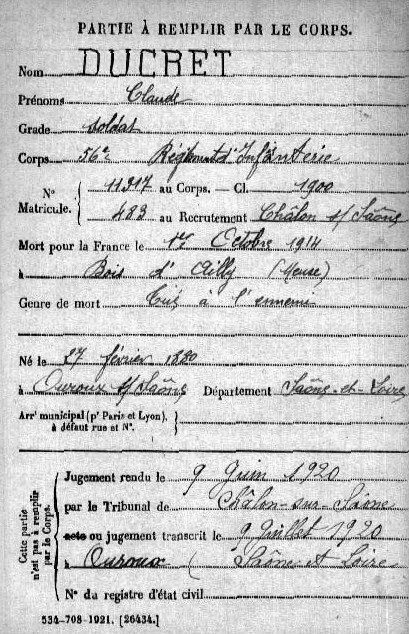 PARTIE À REMPLIR PAR LE CORPS.
Nom DUCRET
Prénoms Claude
Grade soldat
Corps 56e Régiment d'Infanterie
N° Matricule. 11917 au Corps. — Cl. 1900
483 au Recrutement Châlon s/ Saône
Mort pour la France le 1er Octobre 1914
à Bois d'Ailly (Meuse)
Genre de mort Tué à l'ennemi
Né le 27 février 1880
à Ouroux s/ Saône Département Saône-et-Loire
Arrt municipal (pr Paris et Lyon), à défaut rue et N°.
Cette partie n'est pas à remplir par le Corps.
Jugement rendu le 9 Juin 1920
par le Tribunal de Châlon-sur-Saône
acte ou jugement transcrit le 9 Juillet 1920
à Ouroux (Saône et Loire
N° du registre d'état civil
534-708-1921. [26434.]